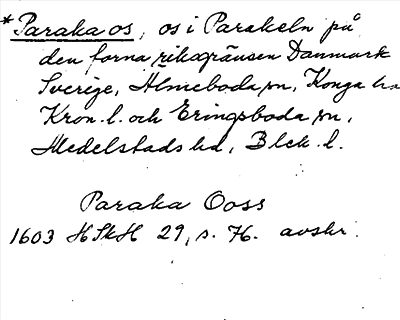 *Paraka os, os i Parakeln på
den forna riksgränsen Danmark
Sverige, Almeboda sn, Konga hd
Kron. l. och Eringsboda sn,
Medelstads hd, Blek. l.
Paraka Ooss
1603 HSkH 29, s. 76. avskr.